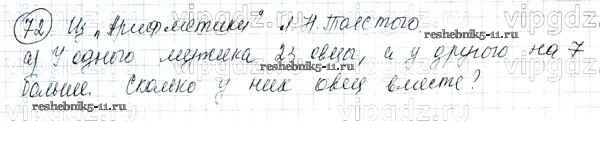 72) Из "Арифметики" Л.Н. Толстого
а) У одного мужика 23 овцы, а у другого на 7
больше. Сколько у них овец вместе?
reshebnik5-11.ru
reshebnik5-11.ru
reshebnik5-11.ru
vipgdz
vipgdz